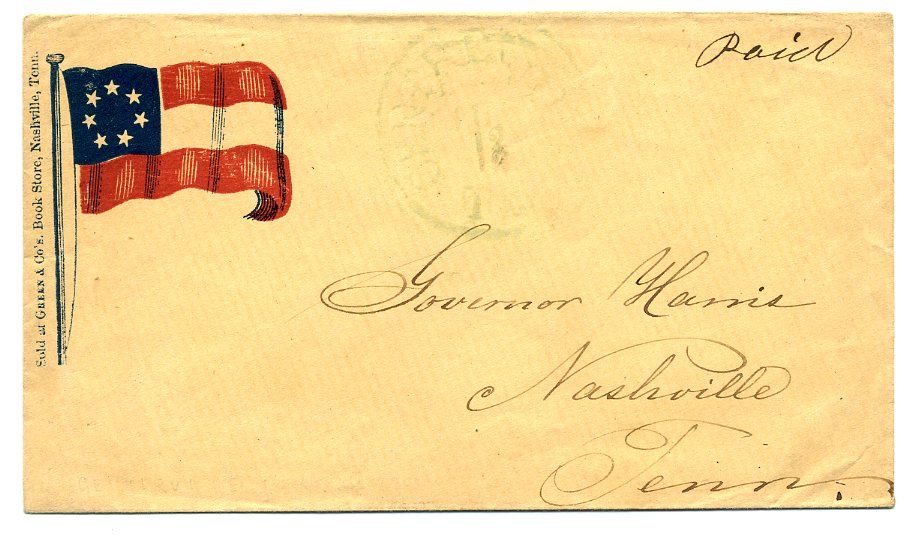 Paid
Sold at GREEN & Co's. Book Store, Nashville, Tenn.
Governor Harris
Nashville
Tenn